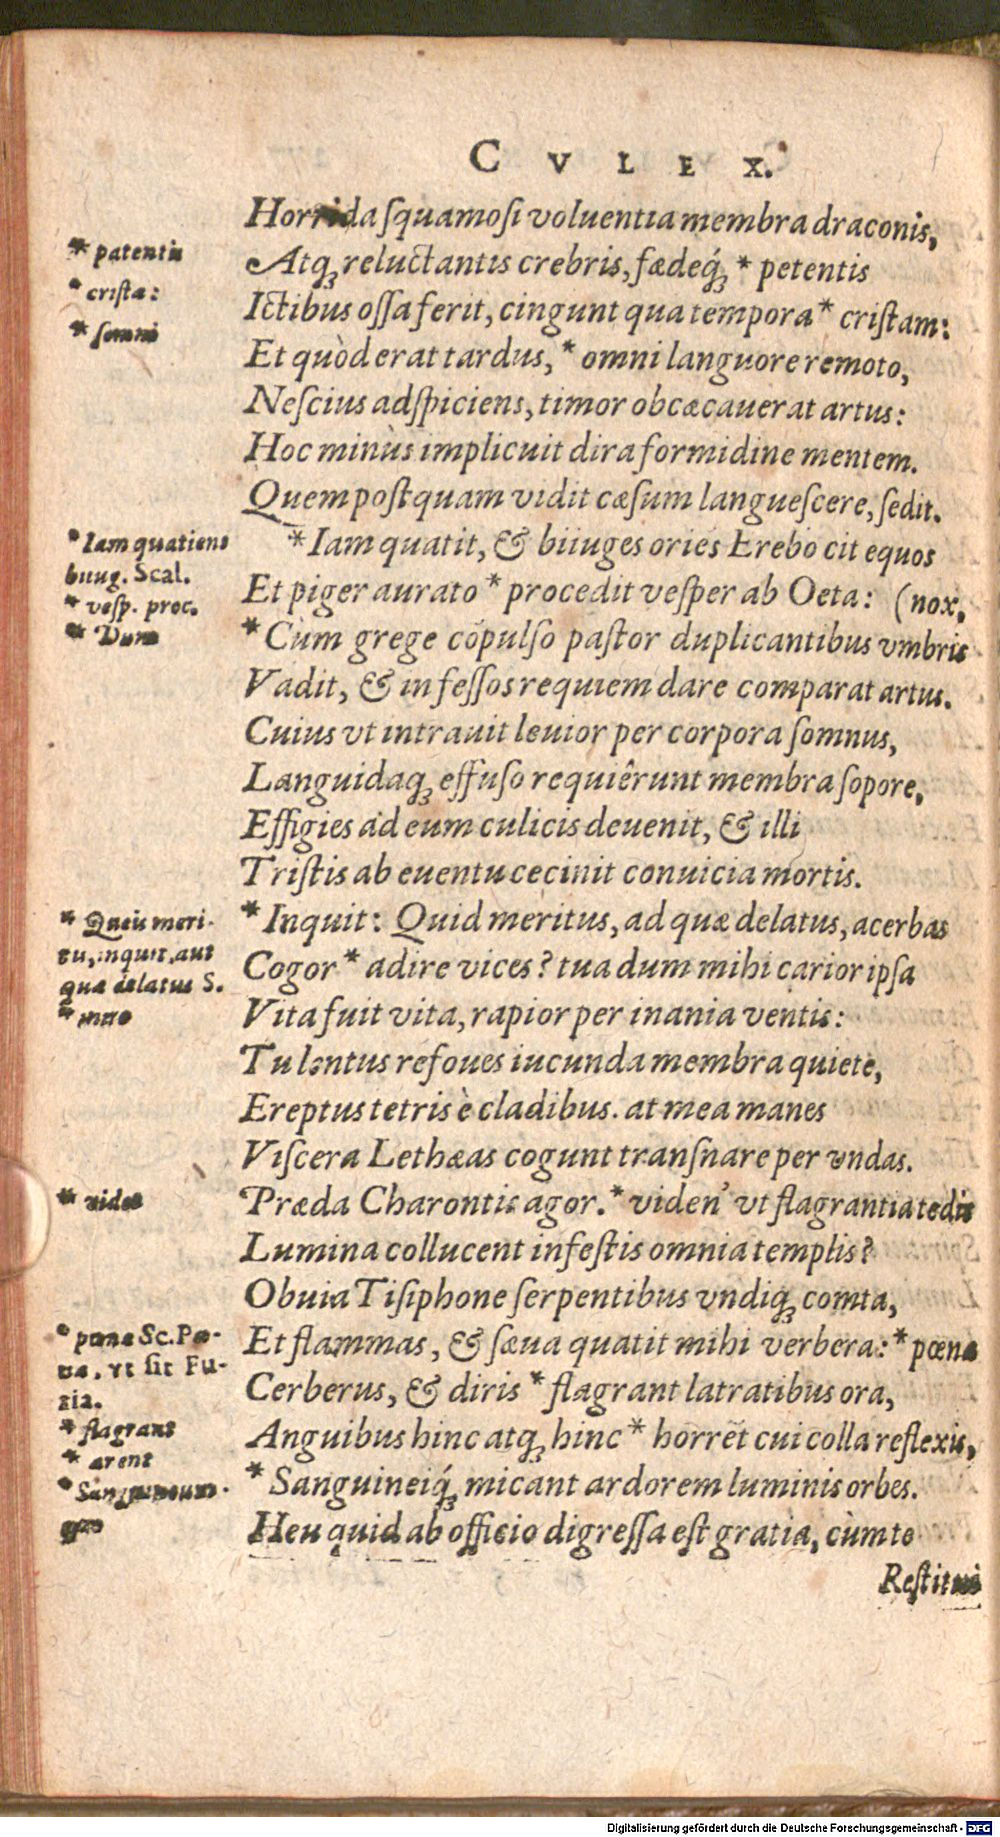 CVLEX.
Horrida ſquamoſi voluentia membra draconis,
Atq́ue reluctantis crebris, fædeq́ue * petentis
Ictibus oſſa ferit, cingunt qua tempora * criſtam:
Et quòd erat tardus, * omni languore remoto,
Neſcius adſpiciens, timor obcæcauerat artus:
Hoc minùs implicuit dira formidine mentem.
Quem poſtquam vidit cæſum langueſcere, ſedit.
*Iam quatit, & biiuges ories Erebo cit equos
Et piger aurato * procedit veſper ab Oeta: (nox,
*Cùm grege cōpulſo paſtor duplicantibus vmbris
Vadit, & in feſſos requiem dare comparat artus.
Cuius vt intrauit leuior per corpora ſomnus,
Languidaq; effuſo requiêrunt membra ſopore,
Effigies ad eum culicis deuenit, & illi
Triſtis ab euentu cecinit conuicia mortis.
*Inquit: Quid meritus, ad quæ delatus, acerbas
Cogor * adire vices? tua dum mihi carior ipſa
Vita fuit vita, rapior per inania ventis:
Tu lentus refoues iucunda membra quiete,
Ereptus tetris è cladibus. at mea manes
Viſcera Lethæas cogunt tranſnare per vndas.
Præda Charontis agor. * viden' vt flagrantia tedis
Lumina collucent infeſtis omnia templis?
Obuia Tiſiphone ſerpentibus vndiq; comta,
Et flammas, & ſæua quatit mihi verbera: * pœnæ
Cerberus, & diris * flagrant latratibus ora,
Anguibus hinc atq; hinc * horrēt cui colla reflexis,
* Sanguineiq́; micant ardorem luminis orbes.
Heu quid ab officio digreſſa eſt gratia, cùm te
Reſtitui
* patentis
* criſtæ:
* ſomni
* Iam quatiens
biiug. Scal.
* veſp. proc.
* Dum
* Queis meri-
tu, inquit, aut
quæ delatus S.
* vides
* pœnæ Sc. Pœ-
na, vt ſit Fu-
ria.
* flagrant
* arent
* Sanguineum-
que
Digitalisierung gefördert durch die Deutsche Forschungsgemeinschaft - DFG